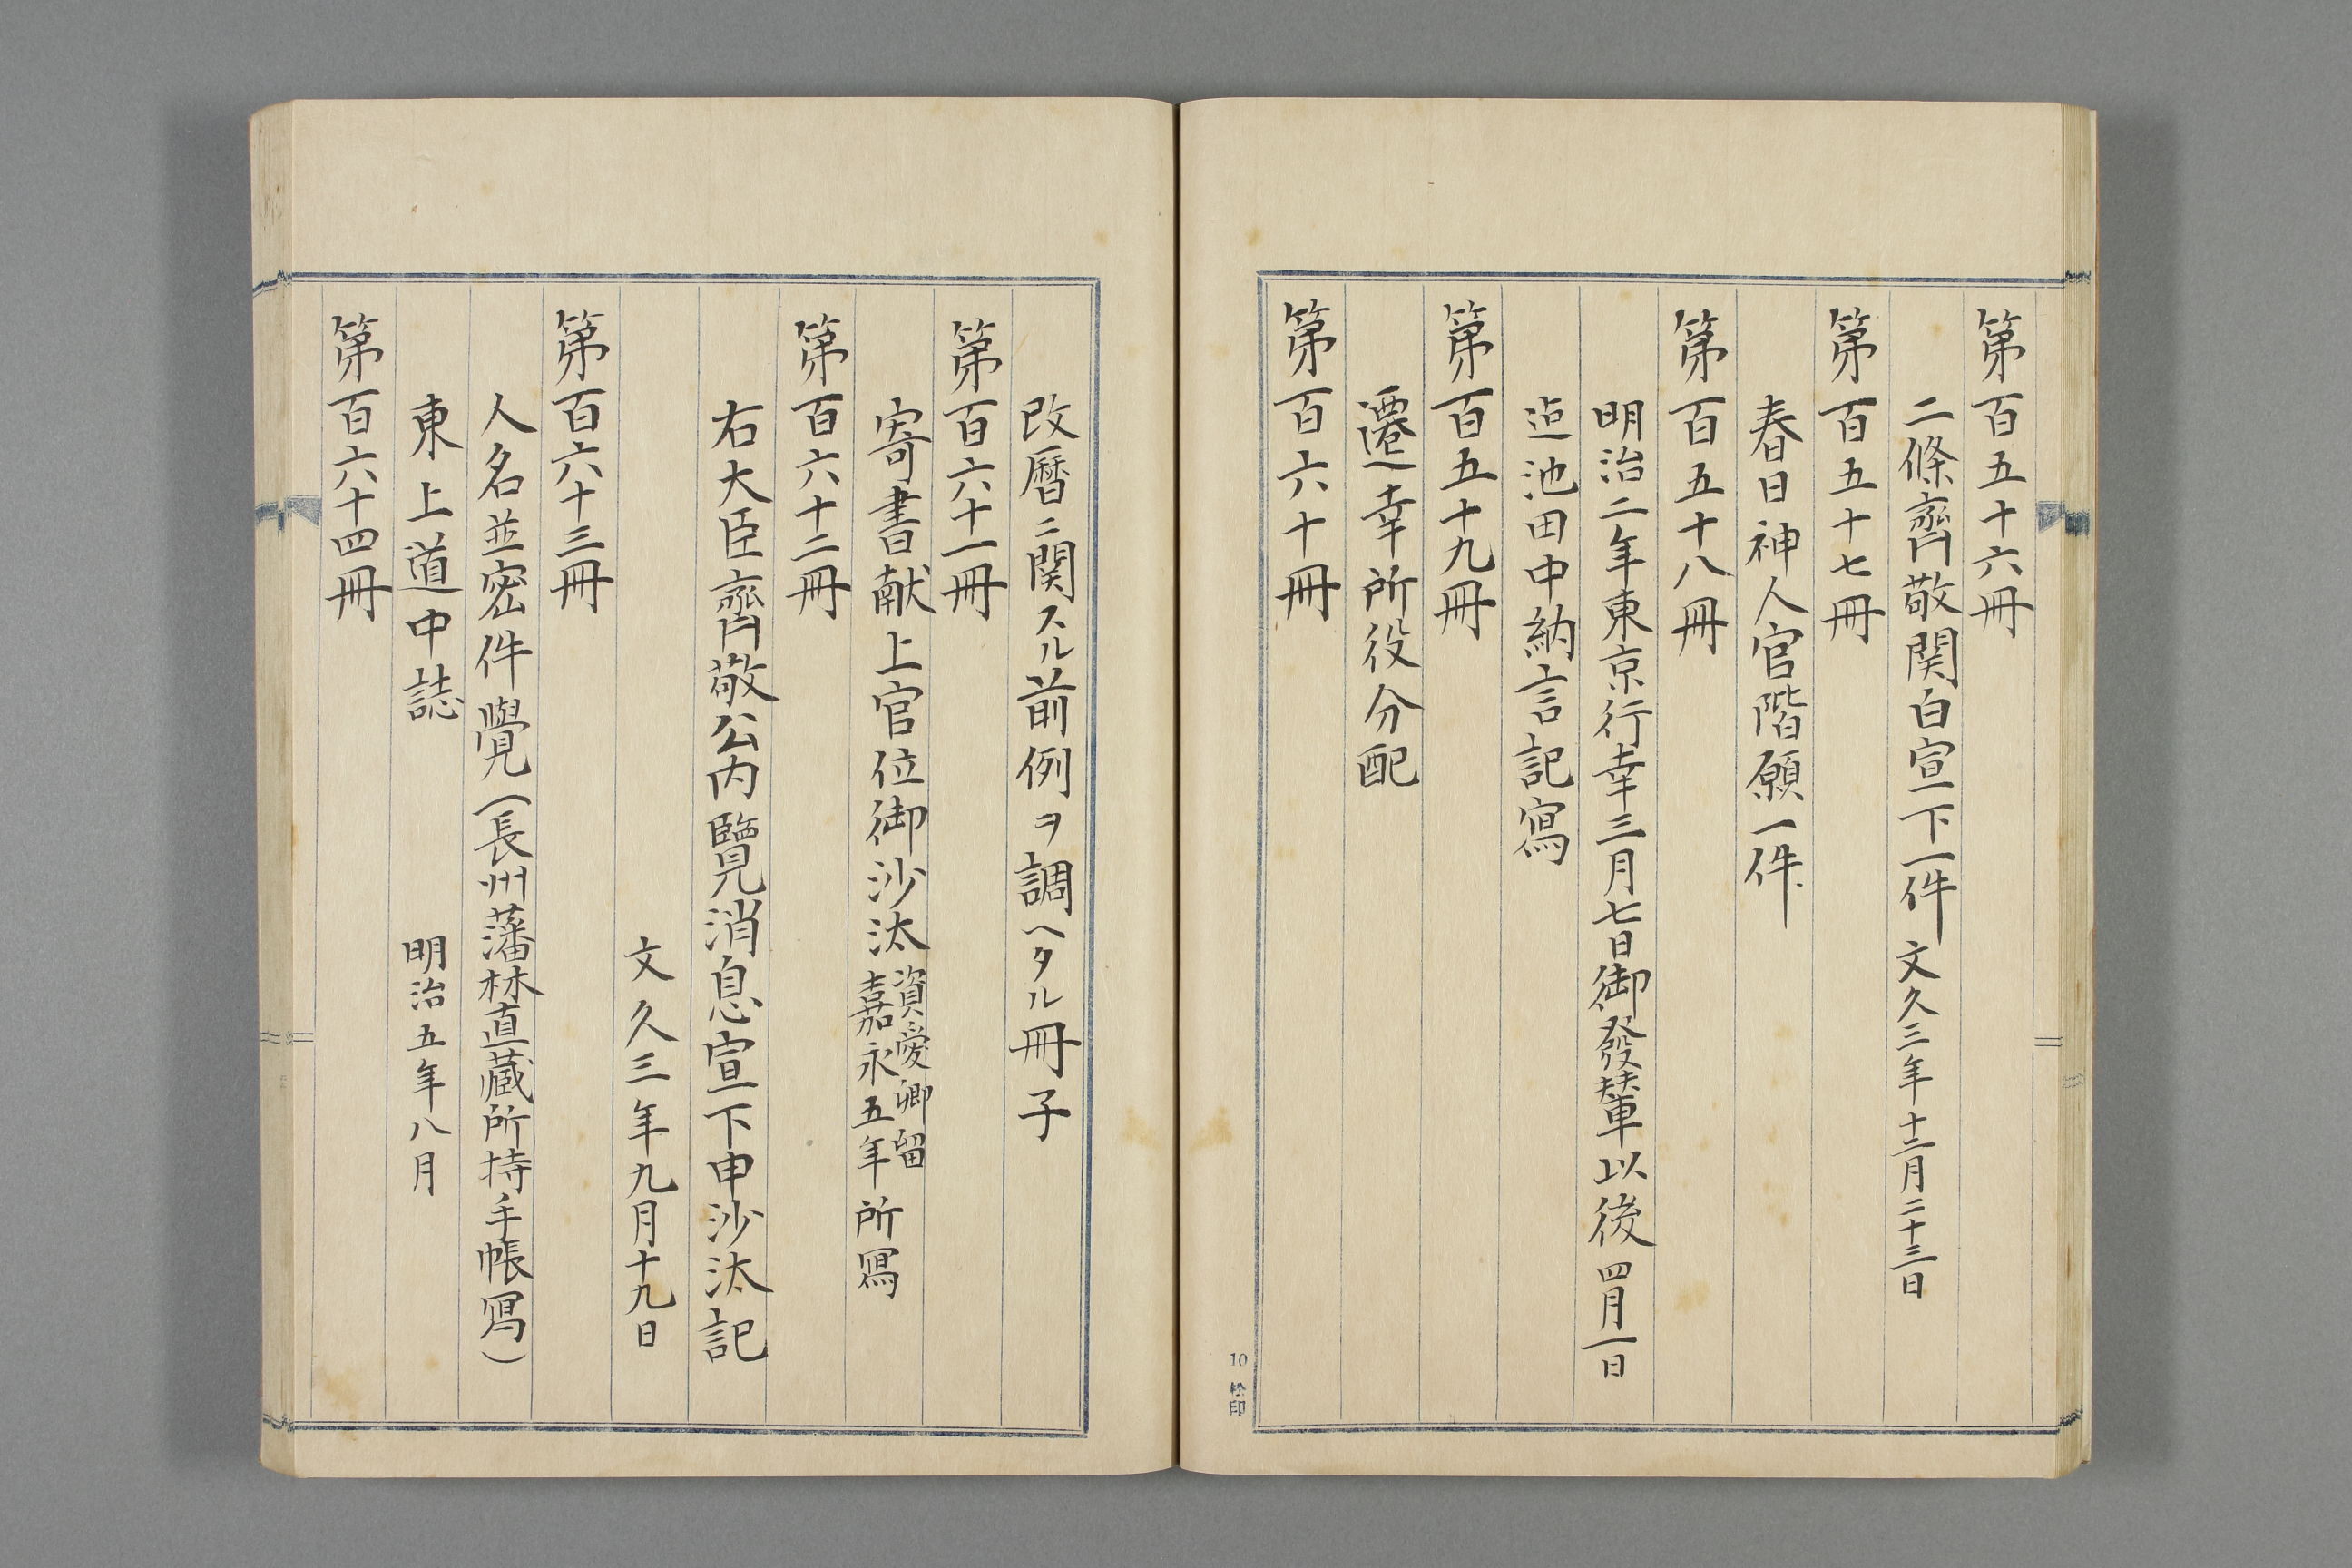 第百五十六冊
二條齊敬関白宣下一件 文久三年十二月二十三日
第百五十七冊
春日神人官階願一件
第百五十八冊
明治二年東京行幸三月七日御發輦以後四月一日
迠池田中納言記寫
第百五十九冊
遷幸所役分配
第百六十冊
10 松印
改曆ニ関スル前例ヲ調ヘタル冊子
第百六十一冊
寄書献上官位御沙汰 資愛卿留
嘉永五年所寫
第百六十二冊
右大臣齊敬公内覽消息宣下申沙汰記
文久三年九月十九日
第百六十三冊
人名並密件覺（長州藩林直藏所持手帳寫）
東上道中誌 明治五年八月
第百六十四冊